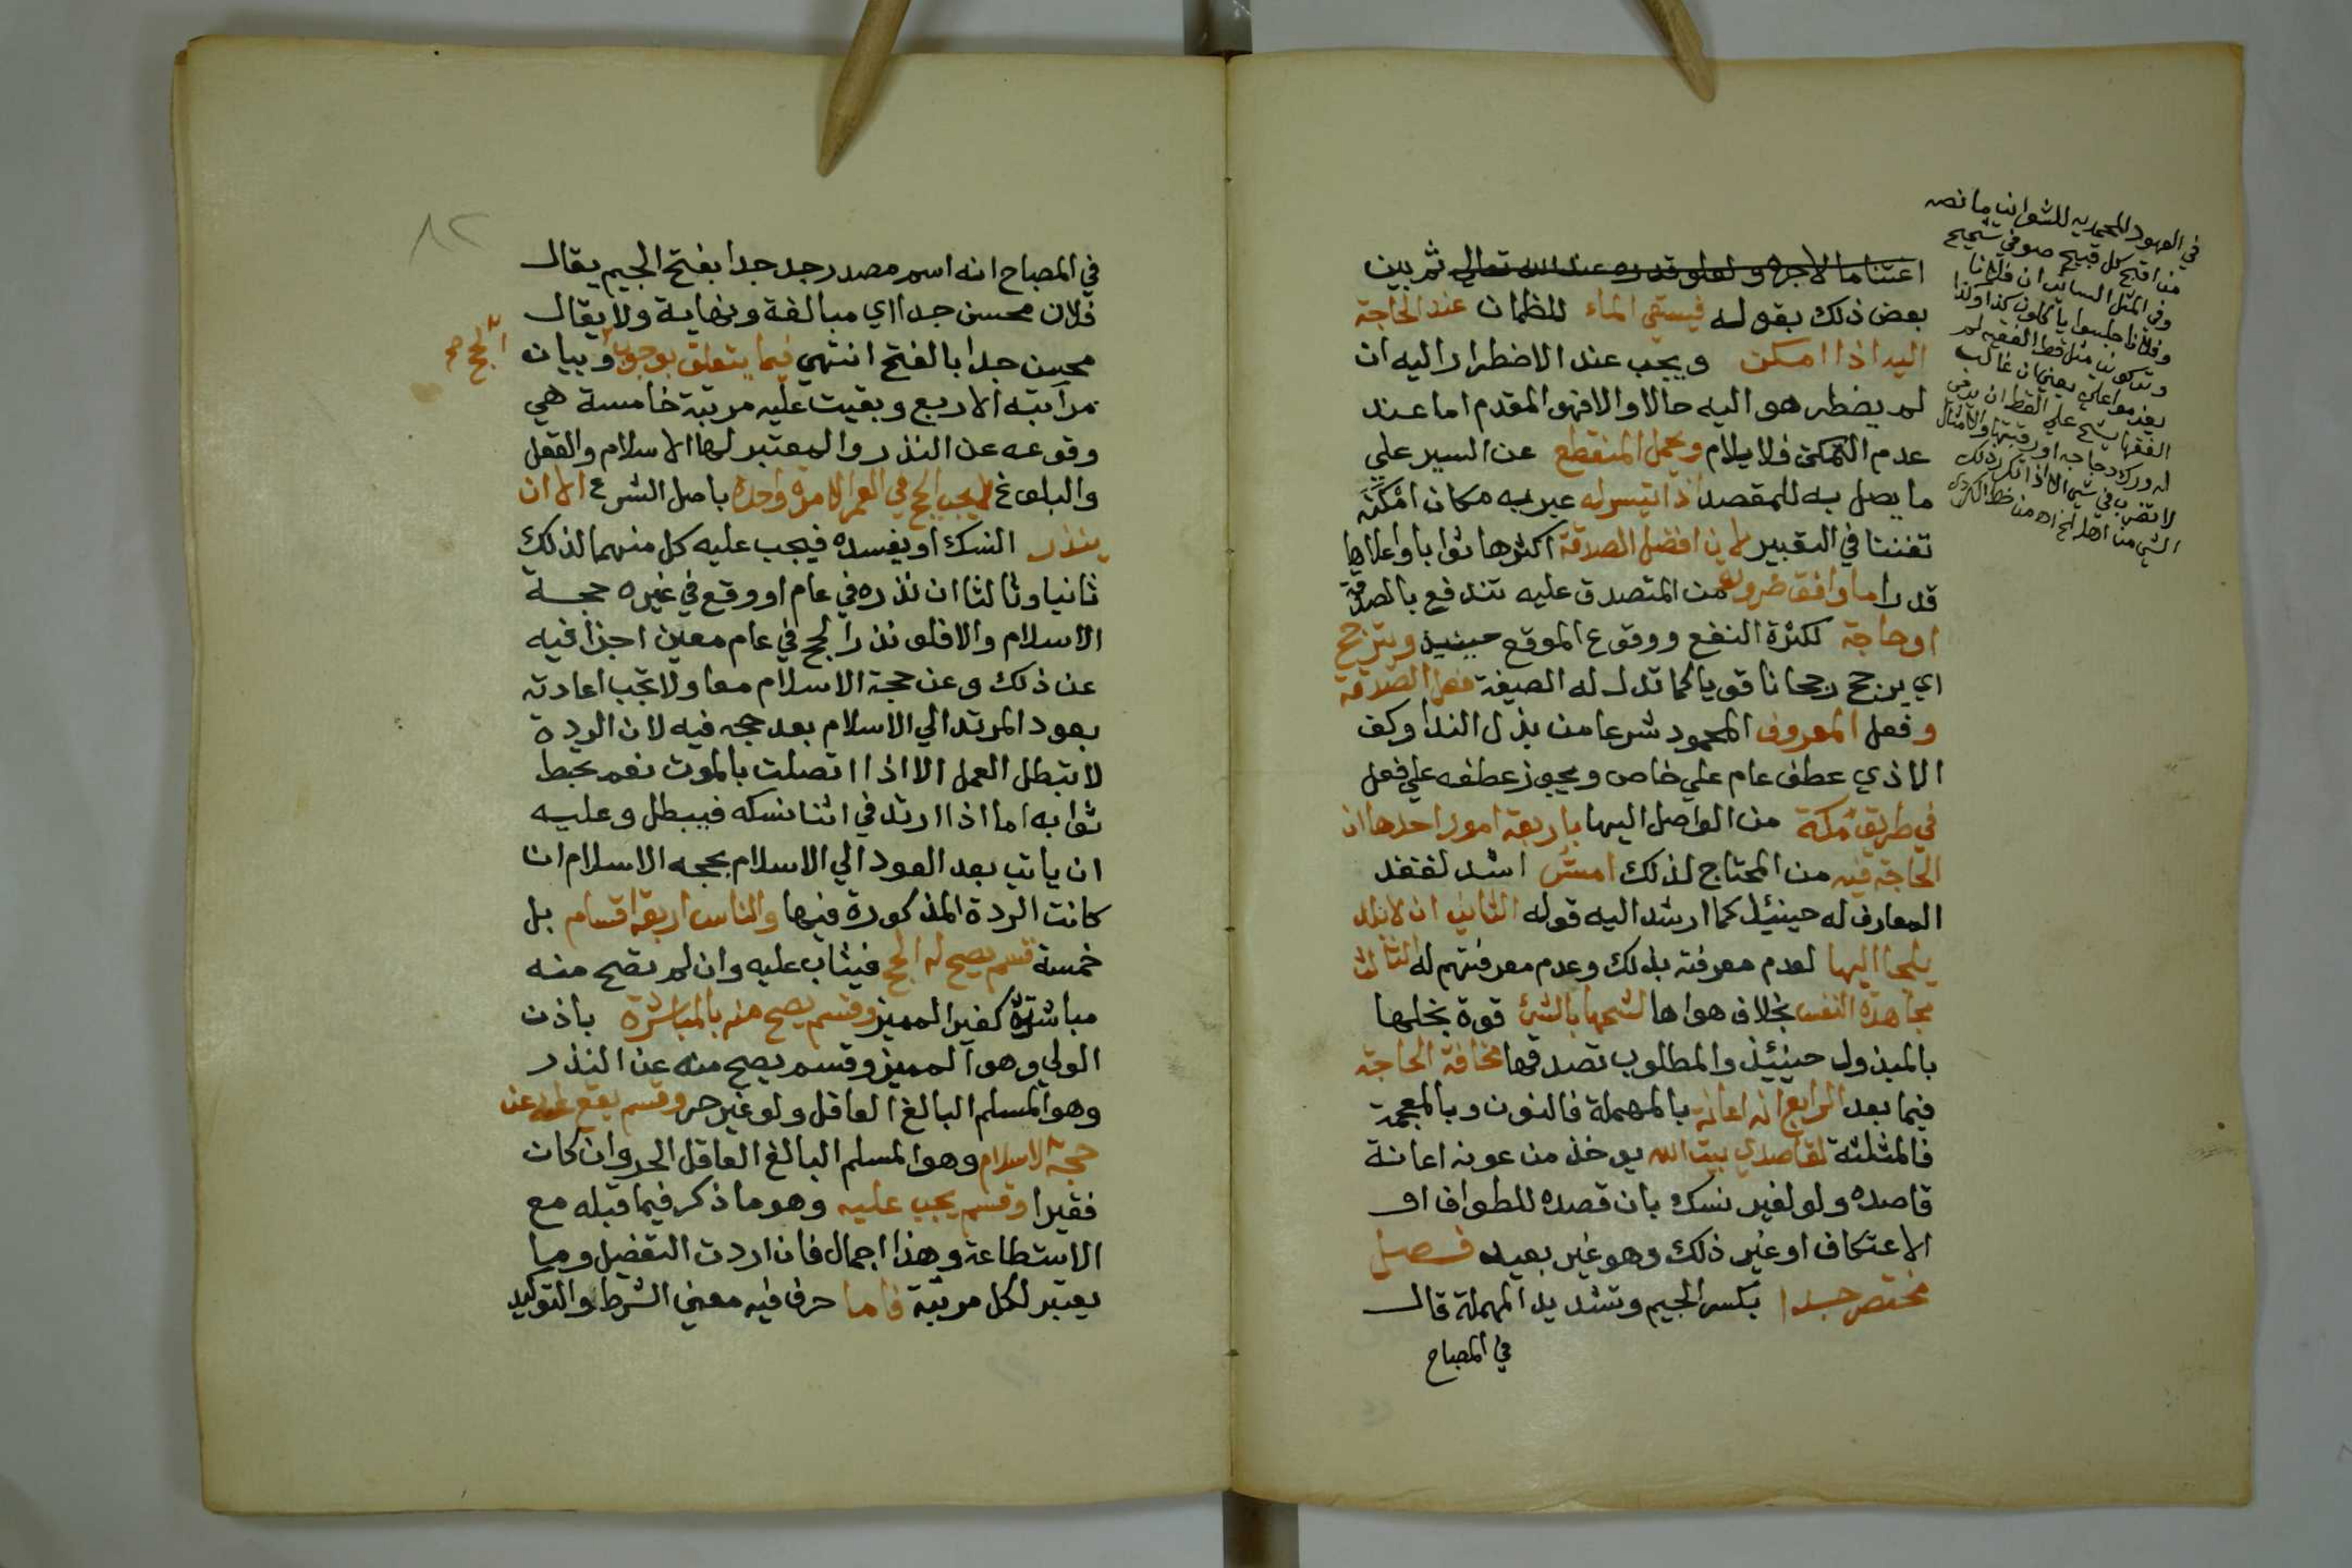 اغتناما لاجره ولعلو قدره عند الله تعالي ثم بين
بعض ذلك بقوله فيسقي الماء للظمان عند الحاجة
اليه اذا امكن ويجب عند الاضطرار اليه ان
لم يضطر هو اليه حالا والا فهو المقدم اما عند
عدم التمكن فلا يلام ويحمل المنقطع عن السير علي
ما يصل به للمقصد اذا تيسر له عبر به مكان امكنه
تفننا في التعبير لان افضل الصدقة اكثرها ثوابا واعلاها
قدرا ما وافق ضرورة من المتصدق عليه تندفع بالصدقة
او حاجة لكثرة النفع ووقوع الموقع حينئذ ويترجح
اي يرجح رجحانا قويا كما تدل له الصيغة فعل الصدقة
وفعل المعروف المحمود شرعا من بذل الندا وكف
الاذي عطف عام علي خاص ويجوز عطفه علي فعل
في طريق مكة من الواصل اليها باربعة امور احدها ان
الحاجة فيه من المحتاج لذلك امس اشد لفقد
المعارف له حينئذ كما ارشد اليه قوله الثاني ان لا بلد
يلجا اليها لعدم معرفته بذلك وعدم معرفتهم له الثالث
مجاهدة النفس بخلاف هواها لشحها بالشي قوة بخلها
بالمبذول حينئذ والمطلوب تصدقها مخافة الحاجة
فيما بعد الرابع انه اعانة بالمهملة فالنون وبالمعجمة
فالمثلثة لقاصدي بيت الله يوخذ من عونه اعانة
قاصده ولو لغير نسك بان قصده للطواف او
الاعتكاف او غير ذلك وهو غير بعيد فصل
مختصر جدا بكسر الجيم وتشديد المهملة قال
في المصباح
في العهود المحمدية للشعراني ما نصه
من اقبح كل قبيح صوفي شحيح
وفي المثل السائر ان فلانا
وفلانا جلسوا ياكلون كذا وكذا
يعزموا علي يعني ان غالب
الفقها يشح علي القط ان يرمي
له ورك دجاجة او رقبتها
في المصباح انه اسم مصدر جد جدا بفتح الجيم يقال
فلان محسن جدا اي مبالغة ونهاية ولا يقال
محسن جدا بالفتح انتهي فيما يتعلق بوجوب وبيان
الحج صح
مراتبه الاربع وبقيت عليه مرتبة خامسة هي
وقوعه عن النذر والمعتبر لها الاسلام والعقل
والبلوغ لا يجب الحج في العمر الا مرة واحدة باصل الشرع الا ان
ينذر النسك او يفسده فيجب عليه كل منهما لذلك
ثانيا وثالثا ان نذره في عام او وقع في غيره حجة
الاسلام والا فلو نذر الحج في عام معين اجزا فيه
عن ذلك وعن حجة الاسلام معا ولا تجب اعادته
بعود المرتد الي الاسلام بعد حجه فيه لان الردة
لا تبطل العمل الا اذا اتصلت بالموت نعم يحبط
ثوابه اما اذا ارتد في اثنا نسكه فيبطل وعليه
ان ياتي بعد العود الي الاسلام بحجة الاسلام ان
كانت الردة المذكورة فيها والناس اربعة اقسام بل
خمسة قسم يصح له الحج فيثاب عليه وان لم تصح منه
مباشرته كغير المميز وقسم يصح منه بالمباشرة باذن
الولي وهو المميز وقسم يصح منه عن النذر
وهو المسلم البالغ العاقل ولو غير حر وقسم يقع له عن
حجة الاسلام وهو المسلم البالغ العاقل الحر وان كان
فقيرا وقسم يجب عليه وهو ما ذكر فيما قبله مع
الاستطاعة وهذا اجمال فان اردت التفصيل وما
يعتبر لكل مرتبة فاما حرف فيه معني الشرط والتوكيد
٨٢